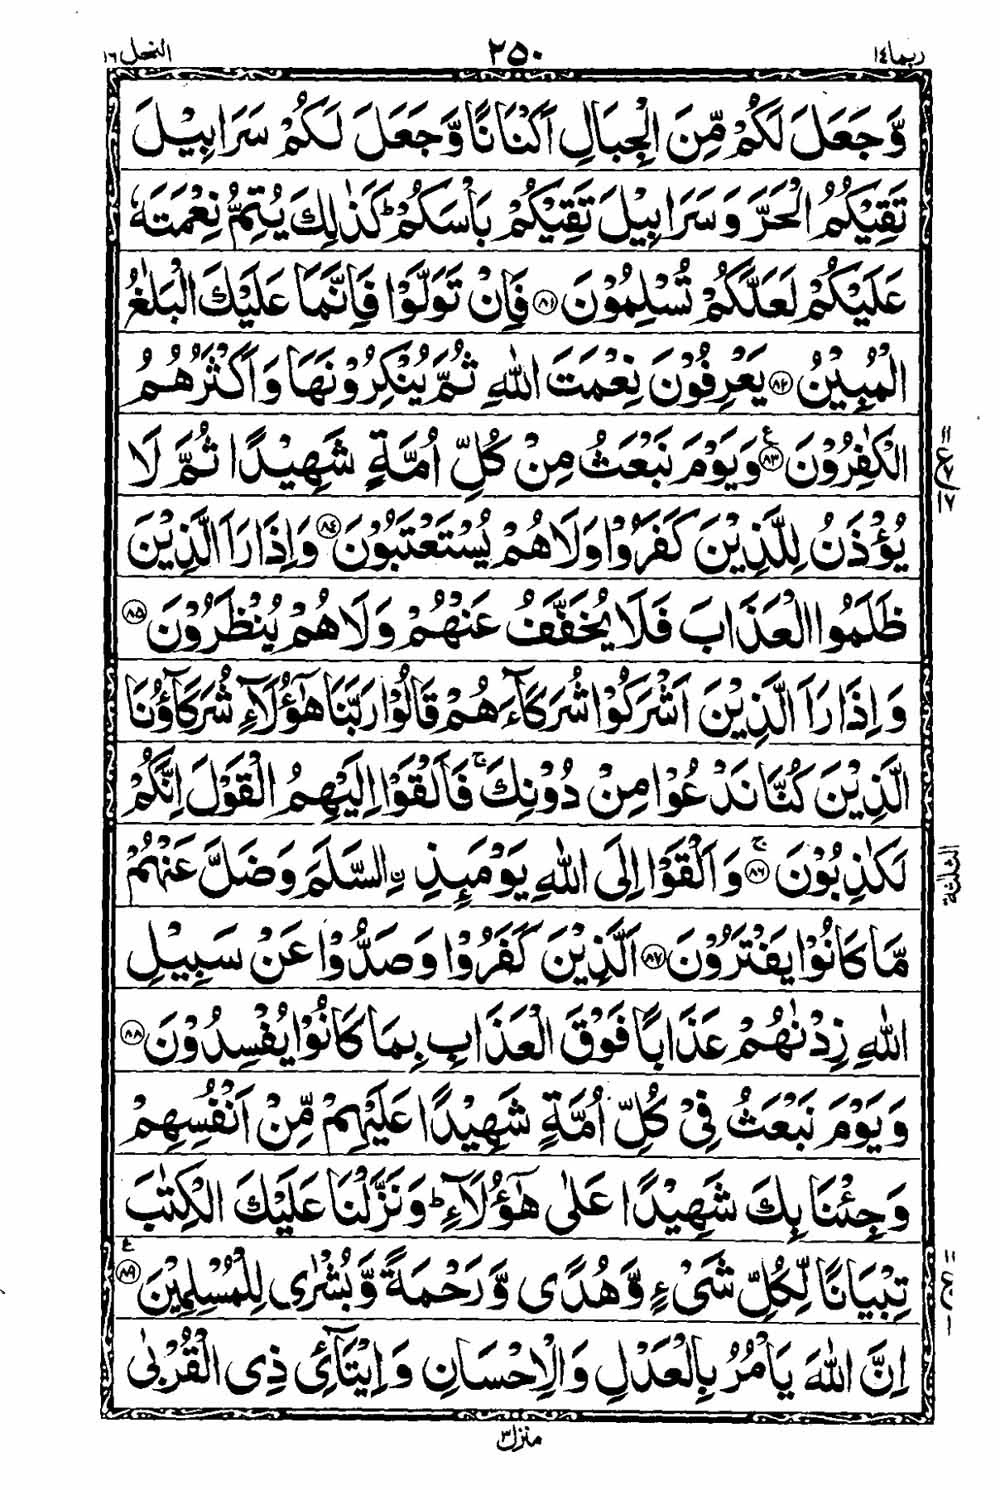 ربما ١٤ ٢٥٠ النحل ١٦
وَّجَعَلَ لَكُمْ مِّنَ الْجِبَالِ اَكْنَانًا وَّجَعَلَ لَكُمْ سَرَابِيْلَ
تَقِيْكُمُ الْحَرَّ وَسَرَابِيْلَ تَقِيْكُمْ بَاْسَكُمْ ؕ كَذٰلِكَ يُتِمُّ نِعْمَتَهٗ
عَلَيْكُمْ لَعَلَّكُمْ تُسْلِمُوْنَ ﴿٨١﴾ فَاِنْ تَوَلَّوْا فَاِنَّمَا عَلَيْكَ الْبَلٰغُ
الْمُبِيْنُ ﴿٨٢﴾ يَعْرِفُوْنَ نِعْمَتَ اللّٰهِ ثُمَّ يُنْكِرُوْنَهَا وَاَكْثَرُهُمُ
الْكٰفِرُوْنَ ﴿٨٣﴾ ع وَيَوْمَ نَبْعَثُ مِنْ كُلِّ اُمَّةٍ شَهِيْدًا ثُمَّ لَا
يُؤْذَنُ لِلَّذِيْنَ كَفَرُوْا وَلَا هُمْ يُسْتَعْتَبُوْنَ ﴿٨٤﴾ وَاِذَا رَاَ الَّذِيْنَ
ظَلَمُوا الْعَذَابَ فَلَا يُخَفَّفُ عَنْهُمْ وَلَا هُمْ يُنْظَرُوْنَ ﴿٨٥﴾
وَاِذَا رَاَ الَّذِيْنَ اَشْرَكُوْا شُرَكَآءَهُمْ قَالُوْا رَبَّنَا هٰۤؤُلَآءِ شُرَكَآؤُنَا
الَّذِيْنَ كُنَّا نَدْعُوْا مِنْ دُوْنِكَ ۚ فَاَلْقَوْا اِلَيْهِمُ الْقَوْلَ اِنَّكُمْ
لَكٰذِبُوْنَ ﴿٨٦﴾ ۚ وَاَلْقَوْا اِلَى اللّٰهِ يَوْمَئِذِ ِ۟السَّلَمَ وَضَلَّ عَنْهُمْ
مَّا كَانُوْا يَفْتَرُوْنَ ﴿٨٧﴾ اَلَّذِيْنَ كَفَرُوْا وَصَدُّوْا عَنْ سَبِيْلِ
اللّٰهِ زِدْنٰهُمْ عَذَابًا فَوْقَ الْعَذَابِ بِمَا كَانُوْا يُفْسِدُوْنَ ﴿٨٨﴾
وَيَوْمَ نَبْعَثُ فِيْ كُلِّ اُمَّةٍ شَهِيْدًا عَلَيْهِمْ مِّنْ اَنْفُسِهِمْ
وَجِئْنَا بِكَ شَهِيْدًا عَلٰى هٰۤؤُلَآءِ ؕ وَنَزَّلْنَا عَلَيْكَ الْكِتٰبَ
تِبْيَانًا لِّكُلِّ شَيْءٍ وَّهُدًى وَّرَحْمَةً وَّبُشْرٰى لِلْمُسْلِمِيْنَ ﴿٨٩﴾ ع
اِنَّ اللّٰهَ يَاْمُرُ بِالْعَدْلِ وَالْاِحْسَانِ وَاِيْتَآئِ ذِي الْقُرْبٰى
الثلثة
منزل ٣